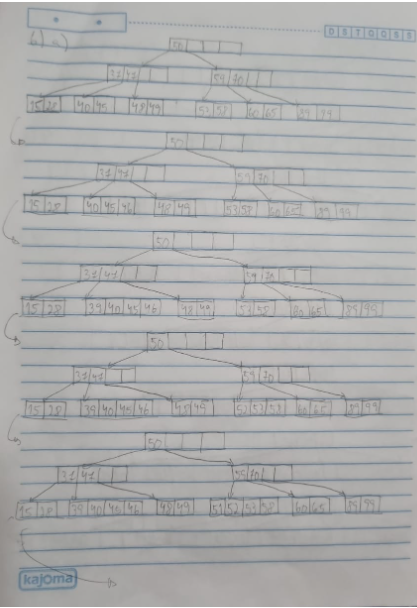 6) a)
50
37 47 59 70
15 28 40 45 48 49 53 58 60 65 89 99
50
37 47 59 70
15 28 40 45 46 48 49 53 58 60 65 89 99
50
37 47 59 70
15 28 39 40 45 46 48 49 53 58 60 65 89 99
50
37 47 59 70
15 28 39 40 45 46 48 49 52 53 58 60 65 89 99
50
37 47 59 70
15 28 39 40 45 46 48 49 51 52 53 58 60 65 89 99
kajoma